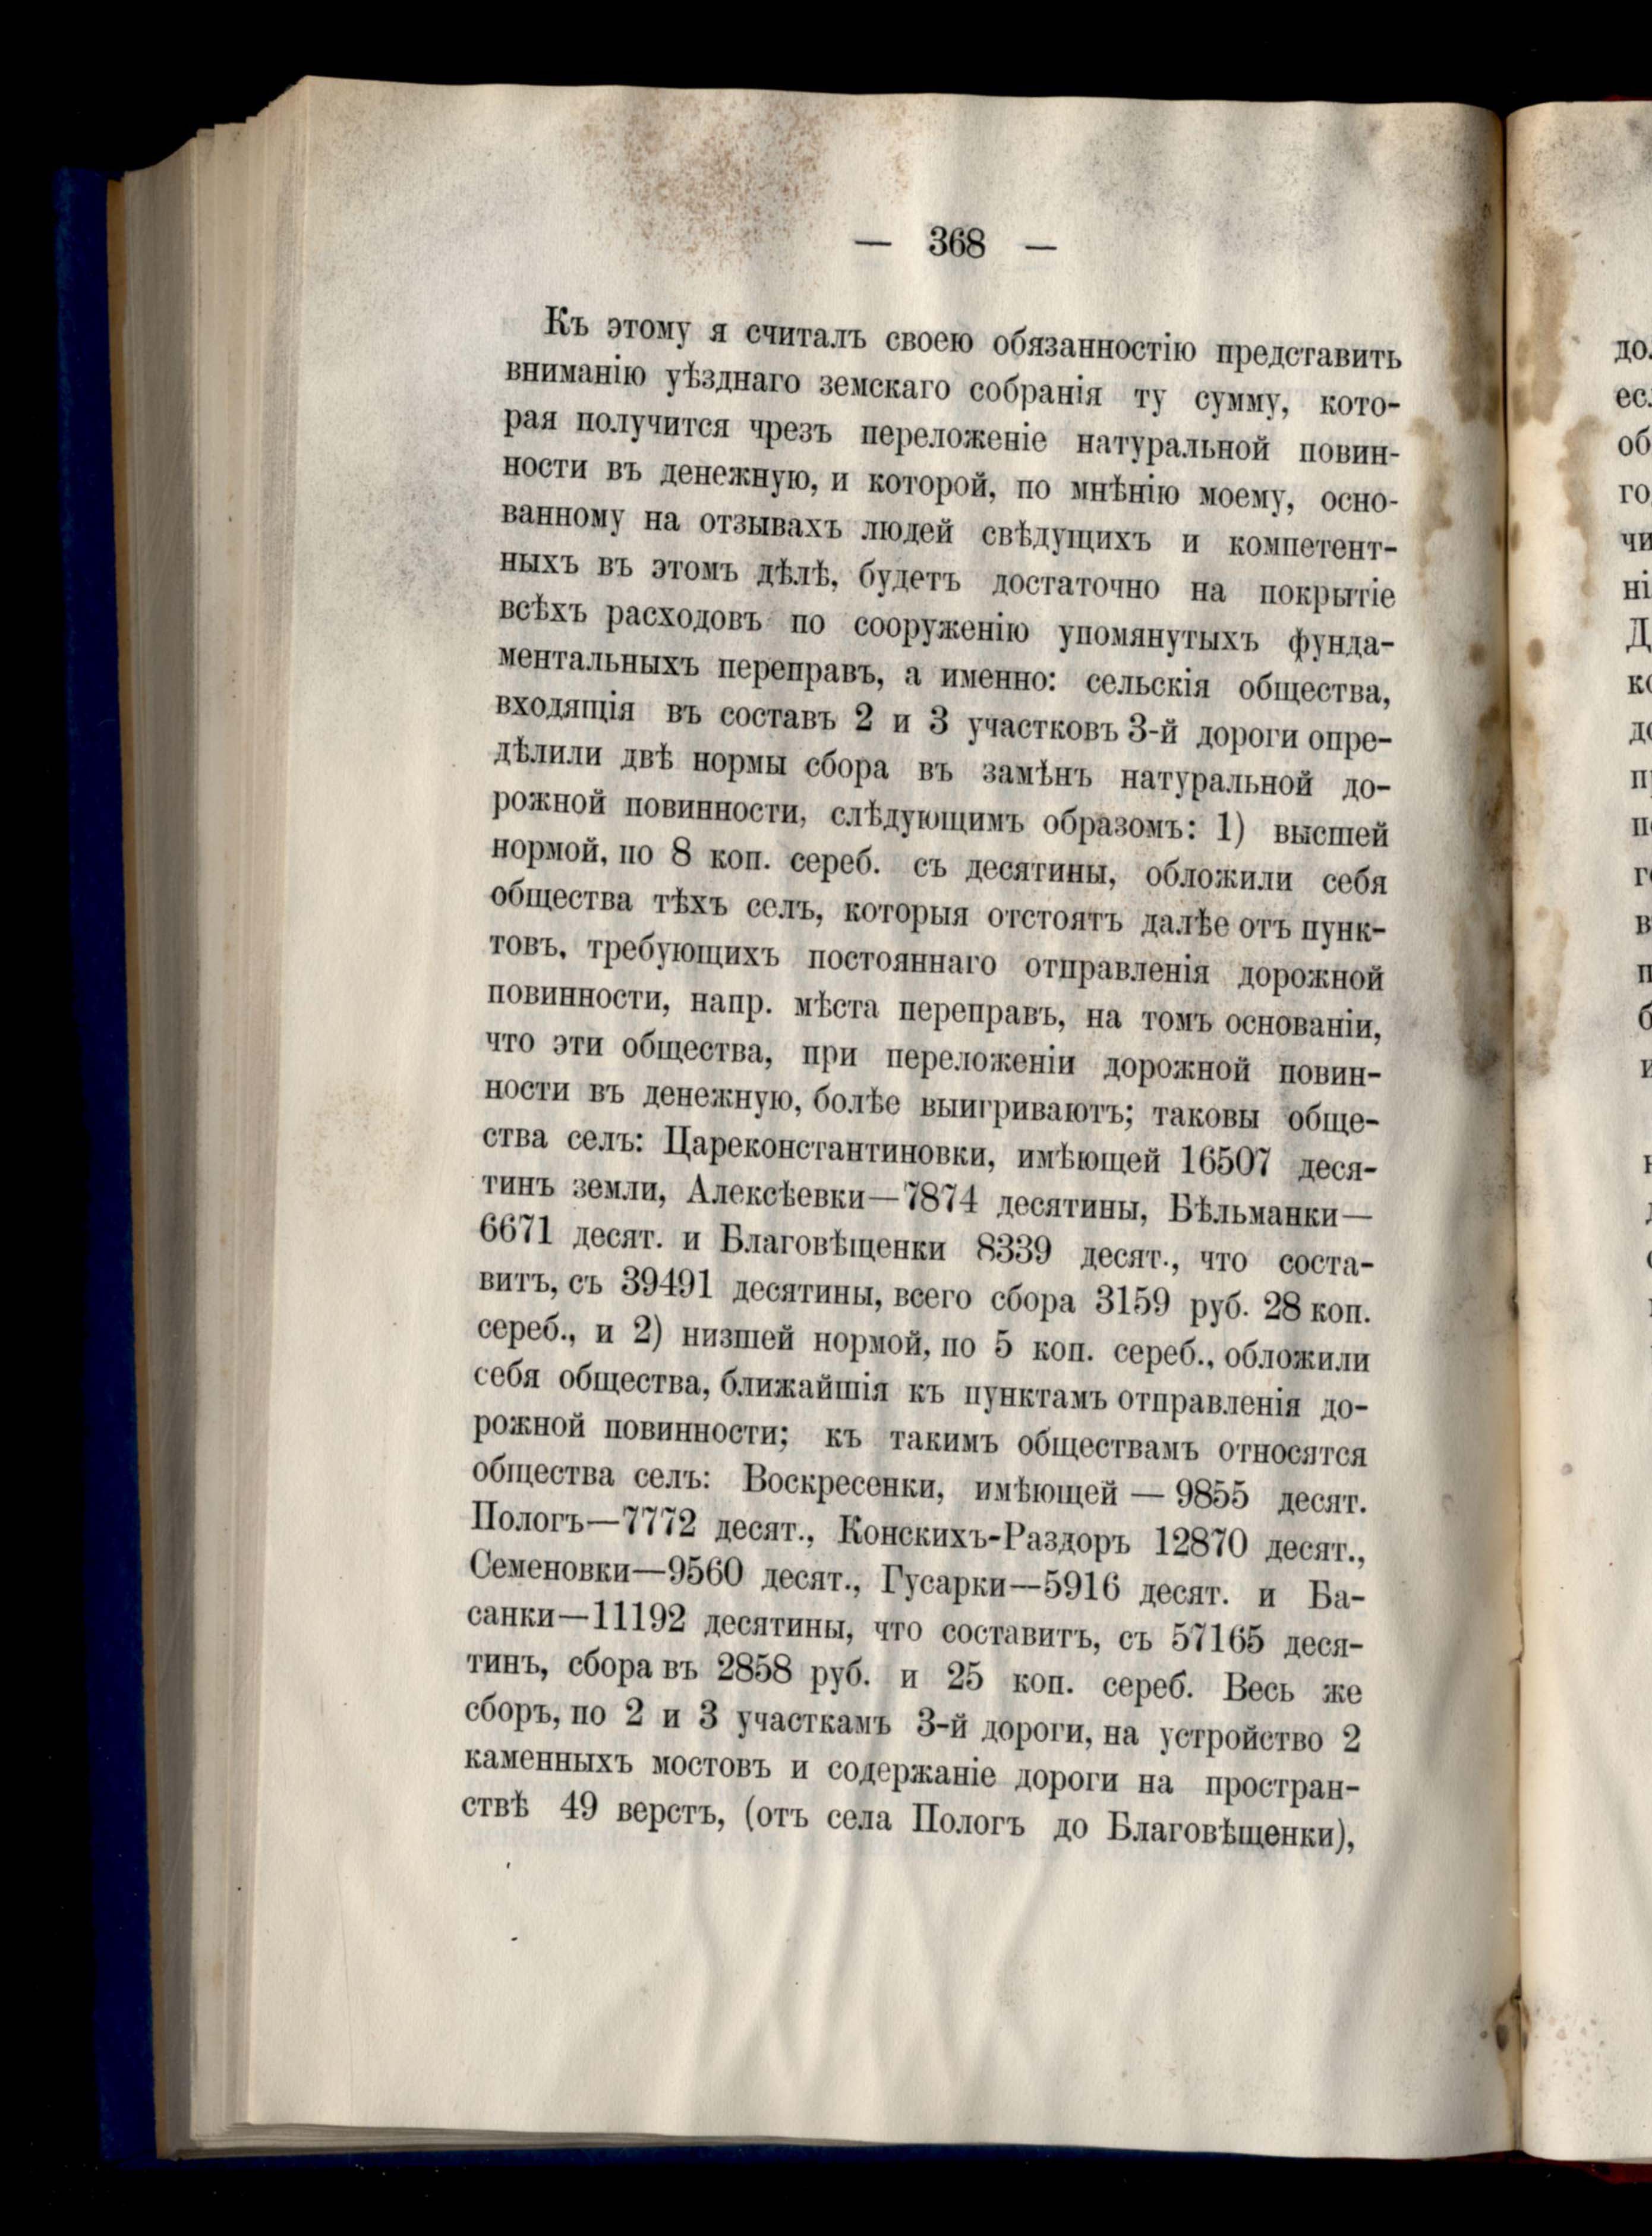 — 368 —
Къ этому я считалъ своею обязанностію представить
вниманію уѣзднаго земскаго собранія ту сумму, кото-
рая получится чрезъ переложеніе натуральной повин-
ности въ денежную, и которой, по мнѣнію моему, осно-
ванному на отзывахъ людей свѣдущихъ и компетент-
ныхъ въ этомъ дѣлѣ, будетъ достаточно на покрытіе
всѣхъ расходовъ по сооруженію упомянутыхъ фунда-
ментальныхъ переправъ, а именно: сельскія общества,
входящія въ составъ 2 и 3 участковъ 3-й дороги опре-
дѣлили двѣ нормы сбора въ замѣнъ натуральной до-
рожной повинности, слѣдующимъ образомъ: 1) высшей
нормой, по 8 коп. сереб. съ десятины, обложили себя
общества тѣхъ селъ, которыя отстоятъ далѣе отъ пунк-
товъ, требующихъ постояннаго отправленія дорожной
повинности, напр. мѣста переправъ, на томъ основаніи,
что эти общества, при переложеніи дорожной повин-
ности въ денежную, болѣе выигриваютъ; таковы обще-
ства селъ: Цареконстантиновки, имѣющей 16507 деся-
тинъ земли, Алексѣевки—7874 десятины, Бѣльманки—
6671 десят. и Благовѣщенки 8339 десят., что соста-
витъ, съ 39491 десятины, всего сбора 3159 руб. 28 коп.
сереб., и 2) низшей нормой, по 5 коп. сереб., обложили
себя общества, ближайшія къ пунктамъ отправленія до-
рожной повинности; къ такимъ обществамъ относятся
общества селъ: Воскресенки, имѣющей — 9855 десят.
Пологъ—7772 десят., Конскихъ-Раздоръ 12870 десят.,
Семеновки—9560 десят., Гусарки—5916 десят. и Ба-
санки—11192 десятины, что составитъ, съ 57165 деся-
тинъ, сбора въ 2858 руб. и 25 коп. сереб. Весь же
сборъ, по 2 и 3 участкамъ 3-й дороги, на устройство 2
каменныхъ мостовъ и содержаніе дороги на простран-
ствѣ 49 верстъ, (отъ села Пологъ до Благовѣщенки),